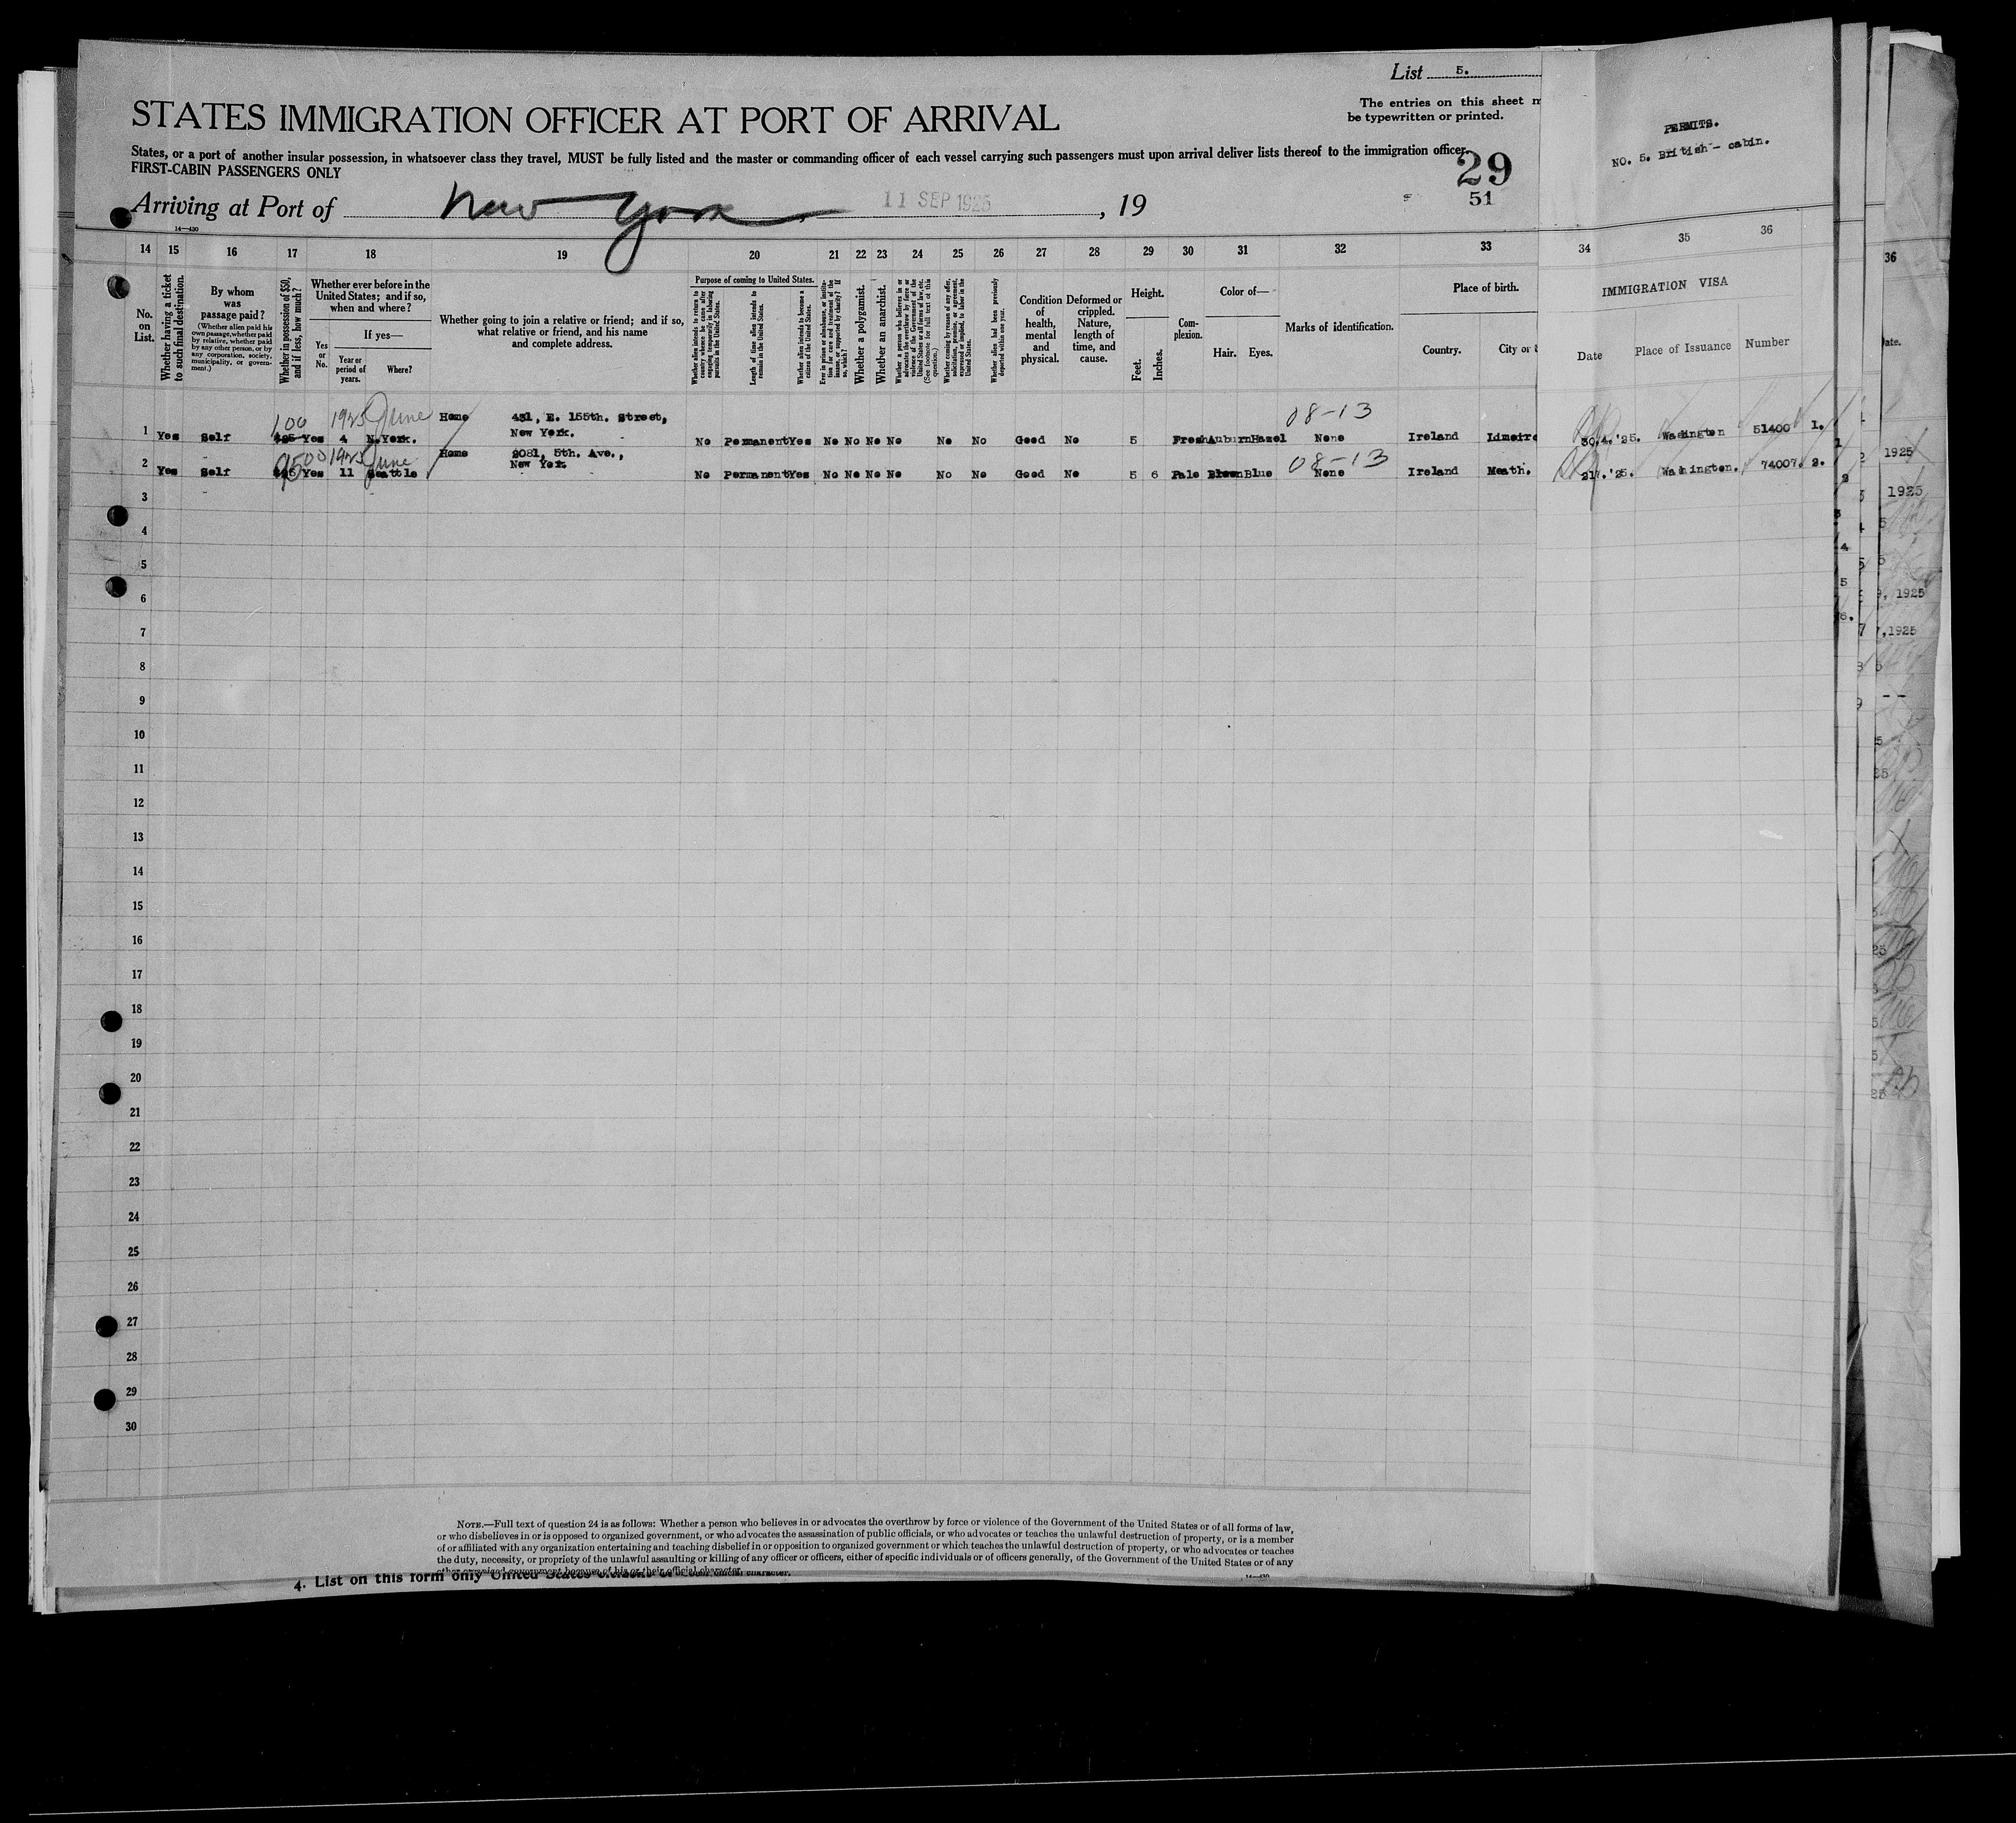 List 5.
The entries on this sheet m
be typewritten or printed.
STATES IMMIGRATION OFFICER AT PORT OF ARRIVAL
States, or a port of another insular possession, in whatsoever class they travel, MUST be fully listed and the master or commanding officer of each vessel carrying such passengers must upon arrival deliver lists thereof to the immigration officer.
FIRST-CABIN PASSENGERS ONLY
29
51
Arriving at Port of New York, 11 SEP 1925, 19
14—430
PERMITS.
NO. 5. British - cabin.
14 15 16 17 18 19 20 21 22 23 24 25 26 27 28 29 30 31 32 33 34 35 36
No. on List.
Whether having a ticket to such final destination.
By whom was passage paid?
(Whether alien paid his own passage, whether paid by relative, whether paid by any other person, or by any corporation, society, municipality, or government.)
Whether in possession of $50, and if less, how much?
Whether ever before in the United States; and if so, when and where?
Yes or No.
If yes—
Year or period of years.
Where?
Whether going to join a relative or friend; and if so, what relative or friend, and his name and complete address.
Purpose of coming to United States.
Whether alien intends to return to country whence he came after engaging temporarily in laboring pursuits in the United States.
Length of time alien intends to remain in the United States.
Whether alien intends to become a citizen of the United States.
Ever in prison or almshouse, or institution for care and treatment of the insane, or supported by charity? If so, which?
Whether a polygamist.
Whether an anarchist.
Whether a person who believes in or advocates the overthrow by force or violence of the Government of the United States or all forms of law, etc. (See footnote for full text of this question.)
Whether coming by reason of any offer, solicitation, promise, or agreement, expressed or implied, to labor in the United States.
Whether alien had been previously deported within one year.
Condition of health, mental and physical.
Deformed or crippled. Nature, length of time, and cause.
Height.
Feet. Inches.
Complexion.
Color of—
Hair. Eyes.
Marks of identification.
Place of birth.
Country. City or
IMMIGRATION VISA
Date Place of Issuance Number
100 1925 June 08-13
1 Yes Self Yes 4 N.York. Home 431, E. 155th. Street, New York. No Permanent Yes No No No No No No Good No 5 Fresh Auburn Hazel None Ireland Limeric 30.4.'25. Washington 51400 1.
1925 June 08-13
2 Yes Self Yes 11 Seattle Home 2081, 5th. Ave., New York No Permanent Yes No No No No No No Good No 5 6 Pale Brown Blue None Ireland Meath. Washington. 74007. 2.
3
4
5
6
7
8
9
10
11
12
13
14
15
16
17
18
19
20
21
22
23
24
25
26
27
28
29
30
36
ate.
1925
1925
9, 1925
7,1925
NOTE.—Full text of question 24 is as follows: Whether a person who believes in or advocates the overthrow by force or violence of the Government of the United States or of all forms of law,
or who disbelieves in or is opposed to organized government, or who advocates the assassination of public officials, or who advocates or teaches the unlawful destruction of property, or is a member
of or affiliated with any organization entertaining and teaching disbelief in or opposition to organized government or which teaches the unlawful destruction of property, or who advocates or teaches
the duty, necessity, or propriety of the unlawful assaulting or killing of any officer or officers, either of specific individuals or of officers generally, of the Government of the United States or of any
other organized government because of his or their official character.
4. List on this form only United States
14—430